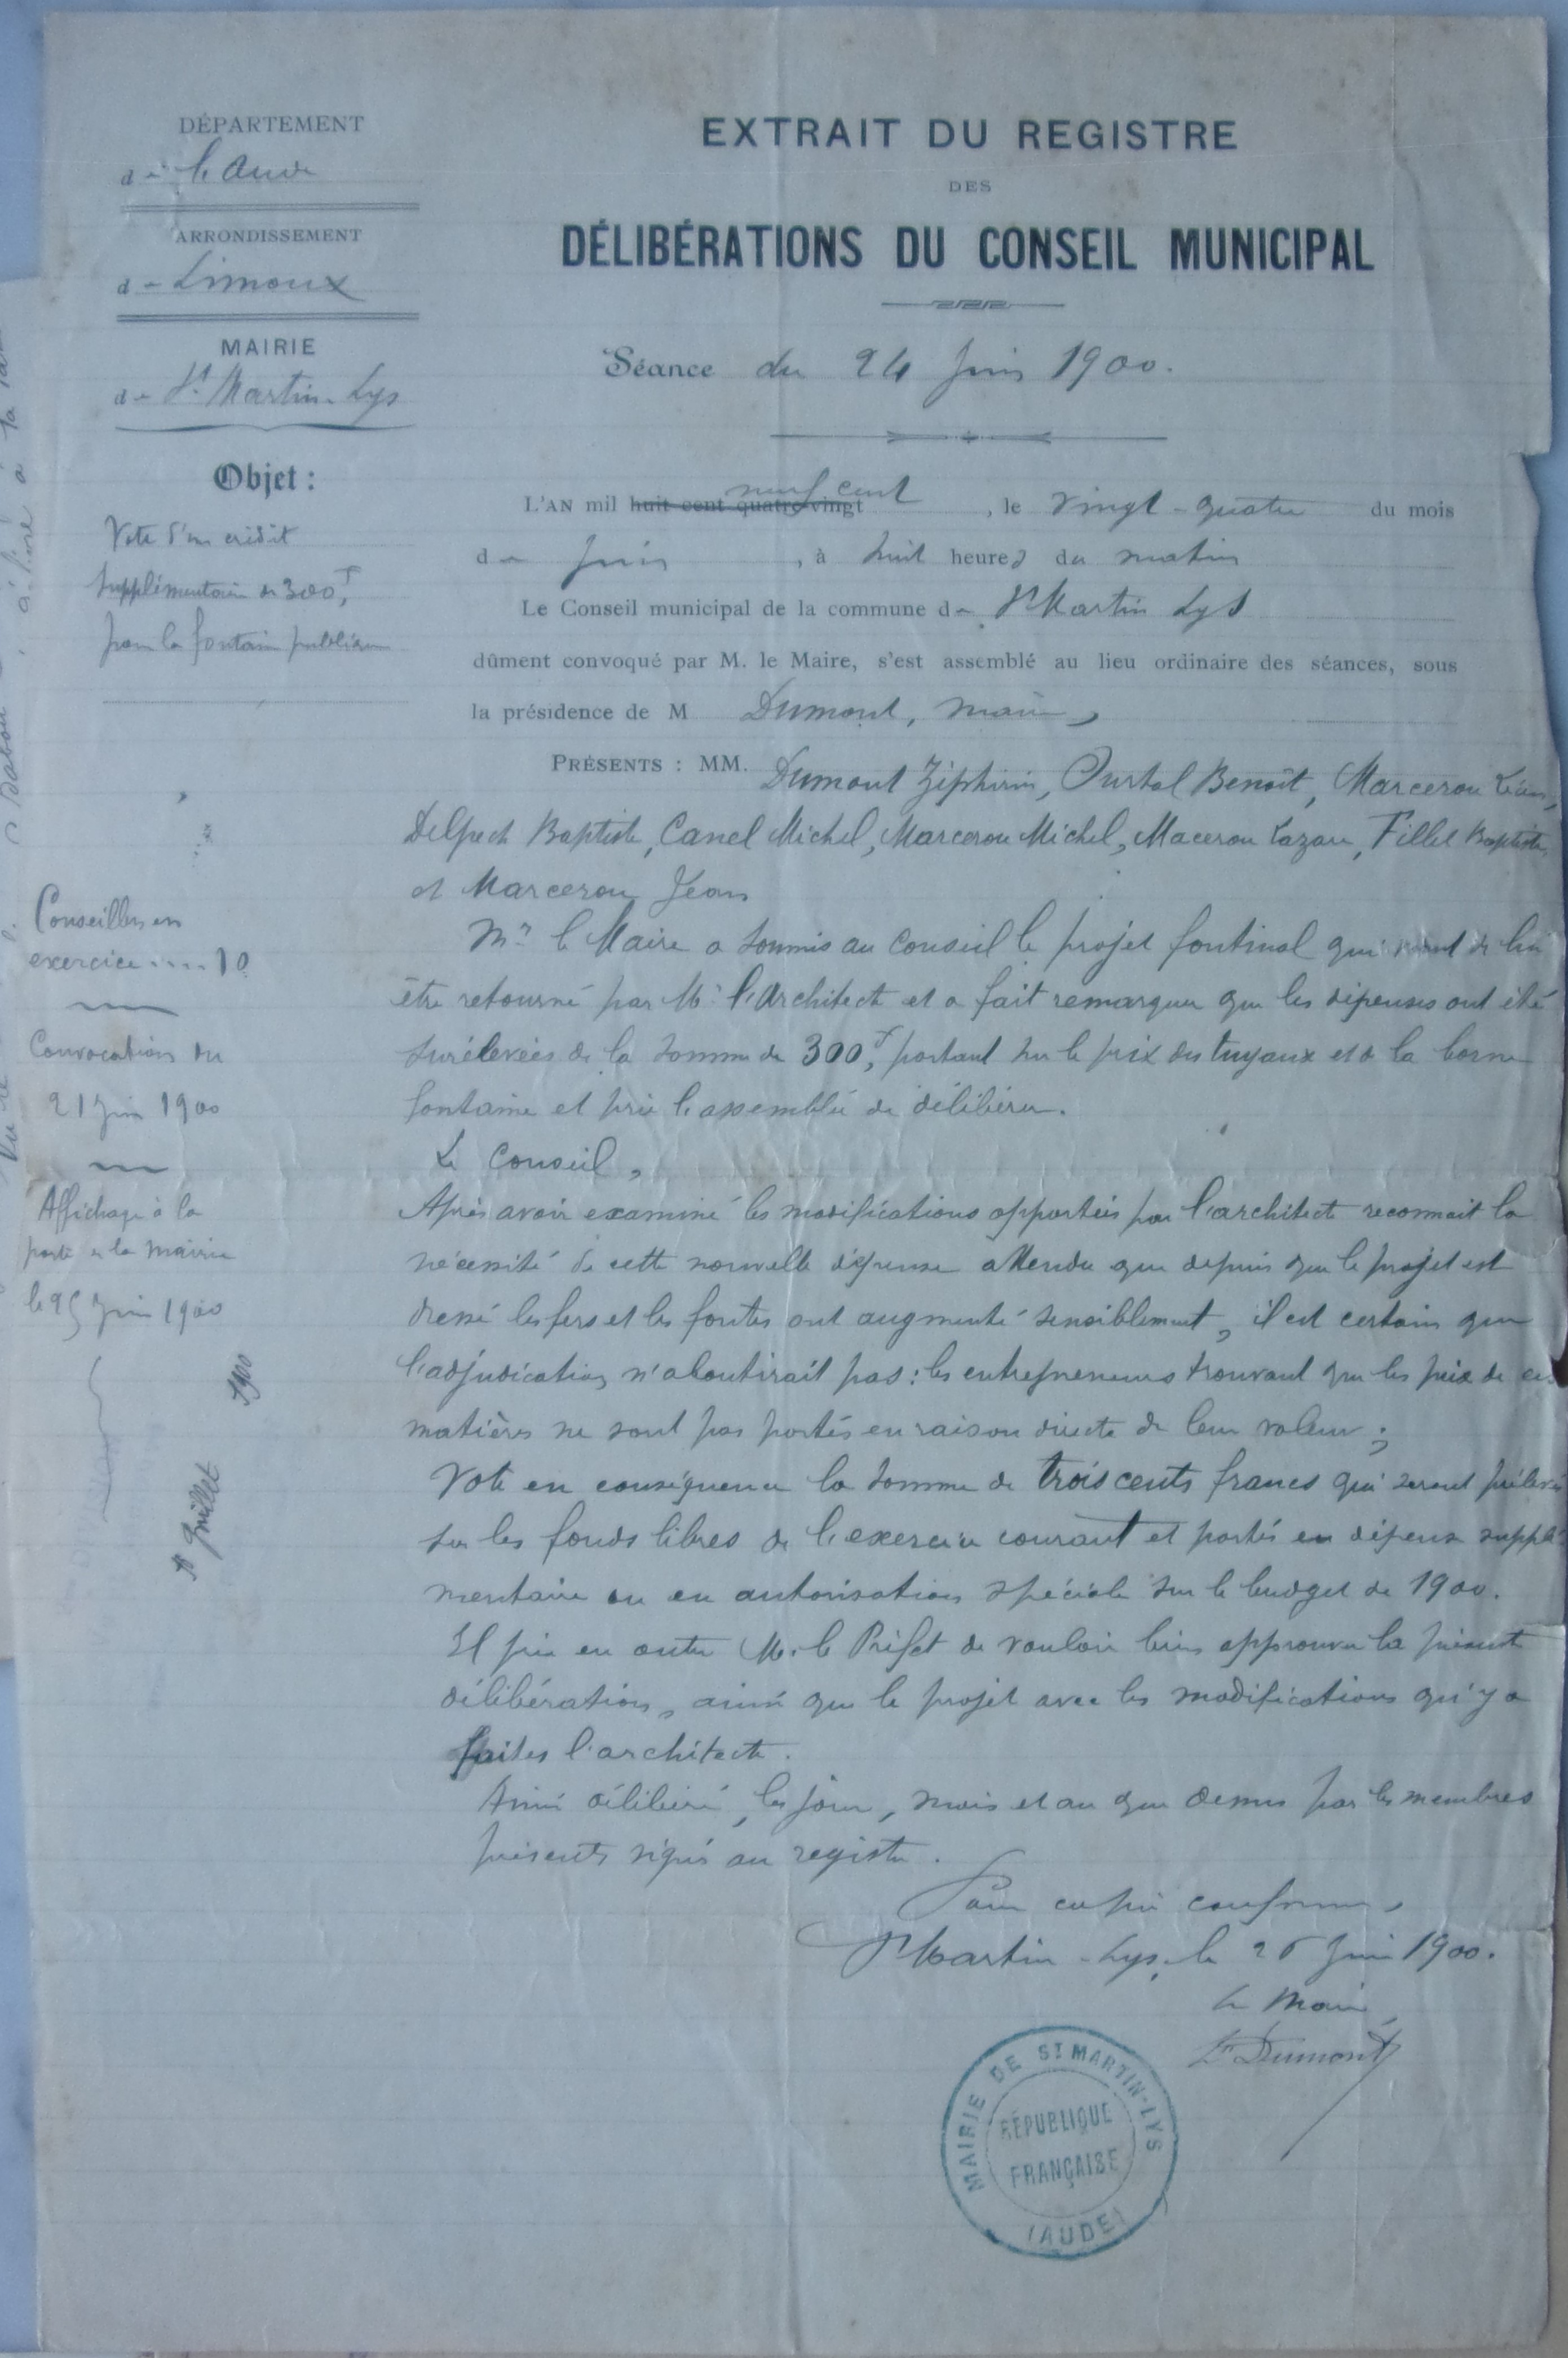 DÉPARTEMENT
de l'Aude
ARRONDISSEMENT
de Limoux
MAIRIE
de St Martin-Lys
Objet :
Vote d'un crédit
supplémentaire de 300f,
pour la fontaine publique
Conseillers en
exercice .... 10
Convocation du
21 Juin 1900
Affichage à la
porte de la mairie
le 25 Juin 1900
10 Juillet 1900
EXTRAIT DU REGISTRE
DES
DÉLIBÉRATIONS DU CONSEIL MUNICIPAL
Séance du 24 Juin 1900.
L'AN mil huit cent quatre-vingt neuf cent, le vingt-quatre du mois
de Juin, à huit heures du matin
Le Conseil municipal de la commune de St Martin Lys
dûment convoqué par M. le Maire, s'est assemblé au lieu ordinaire des séances, sous
la présidence de M Dumont, maire,
PRÉSENTS : MM. Dumont Zéphirin, Ourtal Benoît, Marcerou
Delpech Baptiste, Canel Michel, Marcerou Michel, Macerou Lazare, Fillel Baptiste,
et Marcerou Jean
Mr le Maire a soumis au conseil le projet fontinal qui vient de lui
être retourné par Mr l'Architecte et a fait remarquer que les dépenses ont été
surélevées de la somme de 300f, portant sur le prix des tuyaux et de la borne
fontaine et prie l'assemblée de délibérer.
Le Conseil,
Après avoir examiné les modifications apportées par l'architecte reconnait la
nécessité de cette nouvelle dépense attendu que depuis que le projet est
dressé les fers et les fontes ont augmenté sensiblement, il est certain que
l'adjudication n'aboutirait pas : les entrepreneurs trouvant que les prix de ces
matières ne sont pas portés en raison directe de leur valeur ;
Vote en conséquence la somme de trois cents francs qui seront prélevés
sur les fonds libres de l'exercice courant et portés en dépense supplé-
mentaire ou en autorisation spéciale sur le budget de 1900.
Il prie en outre M. le Préfet de vouloir bien approuver la présente
délibération, ainsi que le projet avec les modifications qu'y a
faites l'architecte.
Ainsi délibéré, les jour, mois et an que dessus par les membres
présents signés au registre.
Pour copie conforme,
St Martin-Lys, le 26 Juin 1900.
Le Maire,
Z Dumont
MAIRIE DE ST MARTIN-LYS
RÉPUBLIQUE
FRANÇAISE
(AUDE)